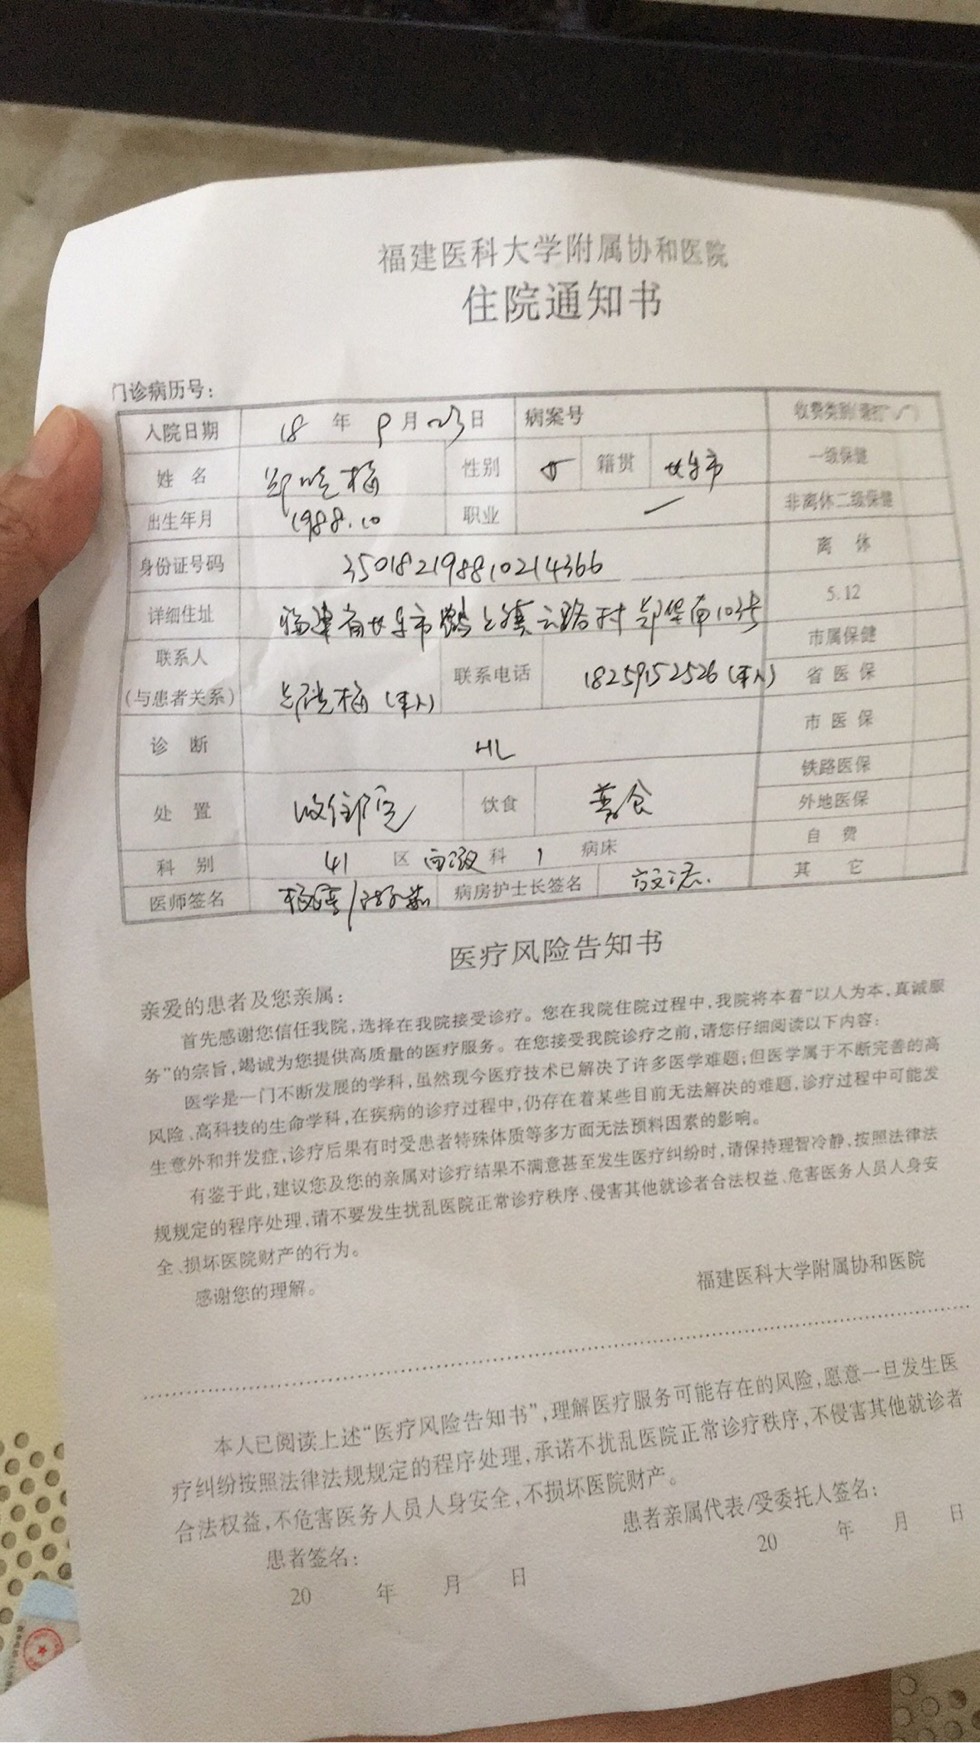 福建医科大学附属协和医院
住院通知书
门诊病历号：
入院日期 18 年 9 月 23 日 病案号 收费类别
姓名 郑晓梅 性别 女 籍贯 长乐市 一级保健
出生年月 1988.10 职业 — 非离休二级保健
身份证号码 350182198810214366 离休
详细住址 福建省长乐市鹤上镇云路村郑华南103号 5.12
联系人 市属保健
(与患者关系) 郑晓梅（本人） 联系电话 18259152526（本人） 省医保
诊断 HL 市医保
铁路医保
处置 收住院 饮食 普食 外地医保
科别 41 区 血液 科 1 病床 自费
医师签名 病房护士长签名 其它
医疗风险告知书
亲爱的患者及您亲属：
首先感谢您信任我院，选择在我院接受诊疗。您在我院住院过程中，我院将本着“以人为本，真诚服
务”的宗旨，竭诚为您提供高质量的医疗服务。在您接受我院诊疗之前，请您仔细阅读以下内容：
医学是一门不断发展的学科，虽然现今医疗技术已解决了许多医学难题；但医学属于不断完善的高
风险、高科技的生命学科，在疾病的诊疗过程中，仍存在着某些目前无法解决的难题，诊疗过程中可能发
生意外和并发症，诊疗后果有时受患者特殊体质等多方面无法预料因素的影响。
有鉴于此，建议您及您的亲属对诊疗结果不满意甚至发生医疗纠纷时，请保持理智冷静，按照法律法
规规定的程序处理，请不要发生扰乱医院正常诊疗秩序、侵害其他就诊者合法权益、危害医务人员人身安
全、损坏医院财产的行为。
感谢您的理解。
福建医科大学附属协和医院
本人已阅读上述“医疗风险告知书”，理解医疗服务可能存在的风险，愿意一旦发生医
疗纠纷按照法律法规规定的程序处理，承诺不扰乱医院正常诊疗秩序，不侵害其他就诊者
合法权益，不危害医务人员人身安全，不损坏医院财产。
患者签名： 患者亲属代表/受委托人签名：
20 年 月 日 20 年 月 日